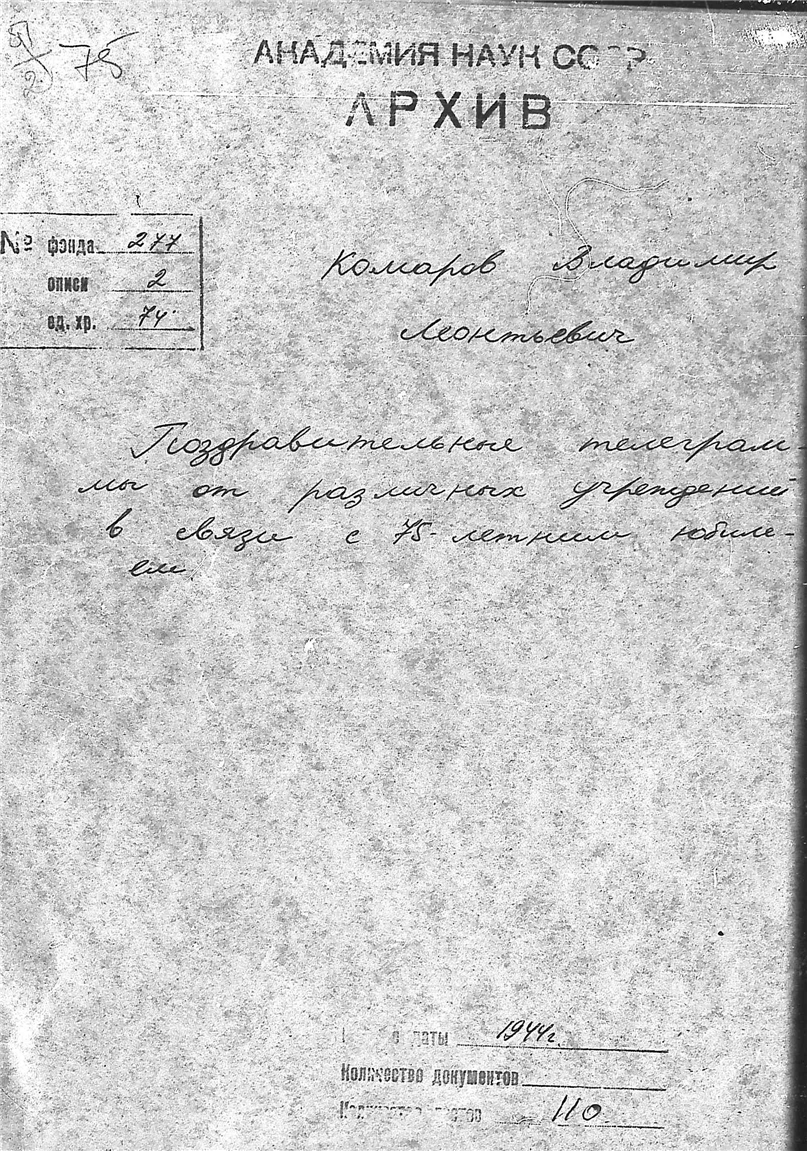 75
АКАДЕМИЯ НАУК СССР
АРХИВ
№ фонда 277
описи 2
ед. хр. 74
Комаров Владимир
Леонтьевич
Поздравительные телеграм-
мы от различных учреждений
в связи с 75-летним юбиле-
ем.
даты 1944г.
Количество документов
Количество листов 110